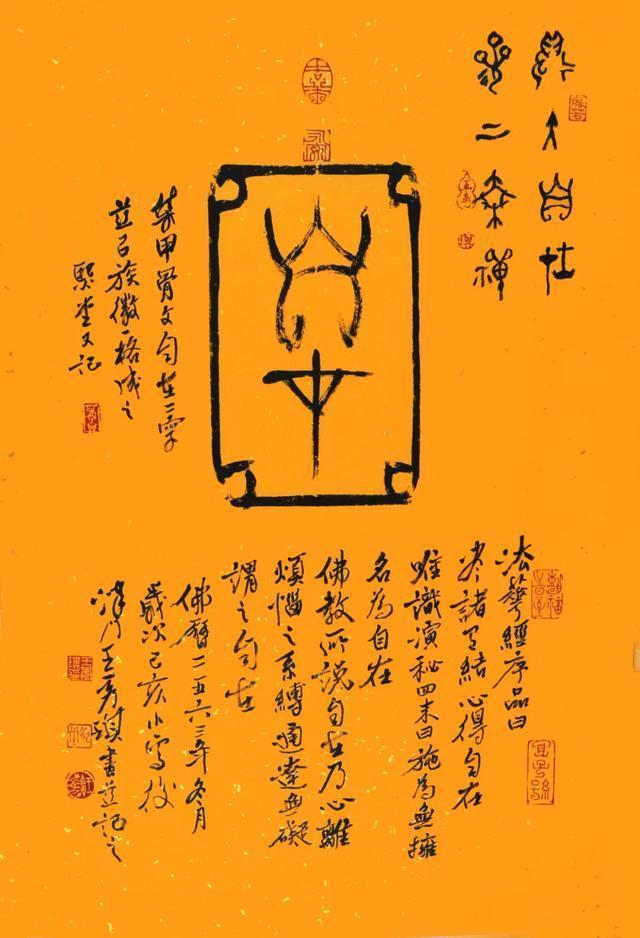 自在
禅
自在
集甲骨文自在二字
並以族徽格成之
又记
法華經序品曰
尽諸有結心得自在
唯識演秘四末曰施為無擁
名為自在
佛教所說自在乃心離
煩惱之系縛通達無礙
謂之自在
佛曆二五六三年冬月
歲次己亥小雪後
王琪書並記之